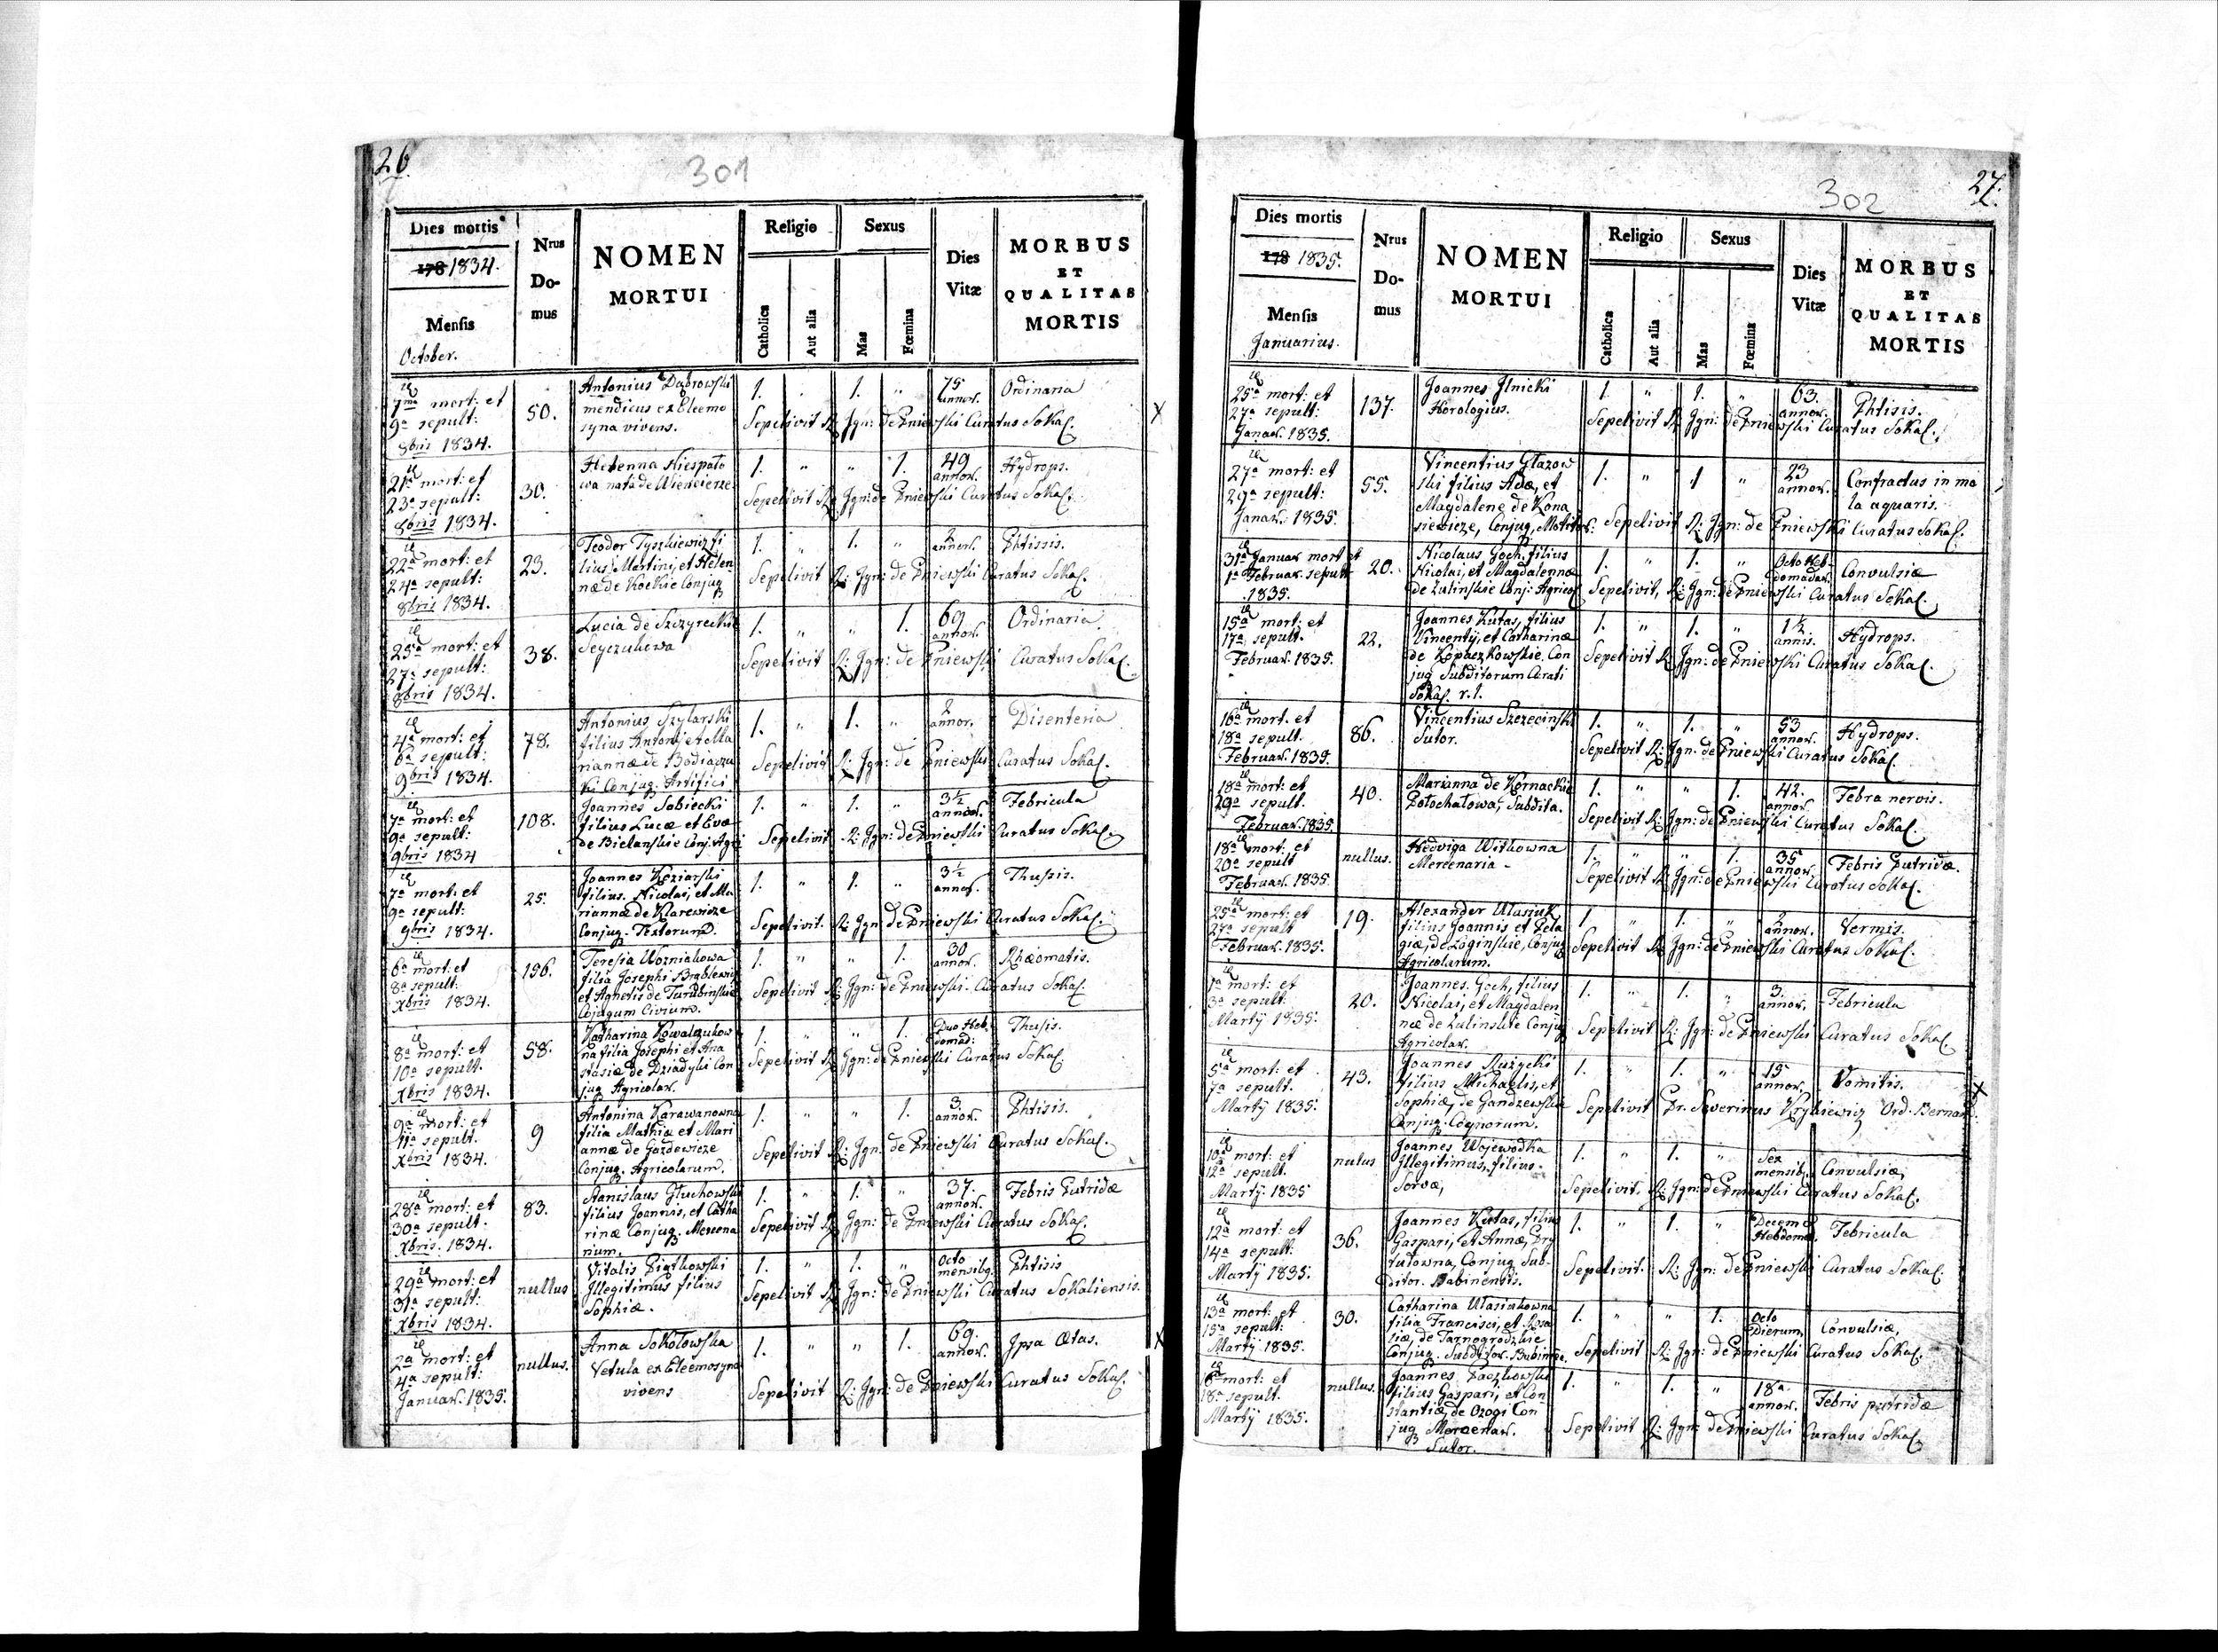 26.
301
Dies mortis
178 1834.
Mensis
October.
Nrus
Do-
mus
NOMEN
MORTUI
Religio
Catholica
Aut alia
Sexus
Mas
Fœmina
Dies
Vitæ
MORBUS
ET
QUALITAS
MORTIS
7ma mort: et
9a sepult:
8bris 1834.
50.
Antonius Dąbrowski
mendicus ex Eleemo
syna vivens.
1. „ 1. „
75
annor.
Ordinaria
Sepelivit R: Jgn: de Pniewski Curatus Sokal.
21a mort: et
23a sepult:
8bris 1834.
30.
Helenna Niespało
wa nata de
1. „ „ 1.
49
annor.
Hydrops.
Sepelivit R: Jgn: de Pniewski Curatus Sokal.
22a mort: et
24a sepult:
8bris 1834.
23.
Teodor Tyszkiewicz fi
lius Martini, et Helen-
næ de Kockie Conjug
1. „ 1. „
2
annor.
Phtissis.
Sepelivit R: Jgn: de Pniewski Curatus Sokal.
25a mort: et
27a sepult:
8bris 1834.
38.
Lucia de Szczyreckie
1. „ „ 1.
69
annor.
Ordinaria.
Sepelivit R: Jgn: de Pniewski Curatus Sokal.
4a mort: et
6a sepult:
9bris 1834.
78.
Antonius Szylarski
filius Antonj et Ma
riannæ de
Conjug. Artifici
1. „ 1. „
2
annor.
Disenteria
Sepelivit R: Jgn: de Pniewski Curatus Sokal.
7a mort: et
9a sepult:
9bris 1834
108.
Joannes Sobiecki
filius Lucæ et Evæ
de Bielanskie Conj. Agri
1. „ 1. „
3½
annor.
Febricula
Sepelivit R: Jgn: de Pniewski Curatus Sokal.
7a mort: et
9a sepult:
9bris 1834.
25.
Joannes Koziarski
filius Nicolai, et Ma
riannæ de Klarewicze
Conjug. Textorum.
1. „ 1. „
3½
annor.
Thussis.
Sepelivit R: Jgn: de Pniewski Curatus Sokal.
6a mort: et
8a sepult:
Xbris 1834.
156.
Teresia Wozniakowa
filia Josephi
et Agnetis de Turubinskie
Cojugum Civium.
1. „ „ 1.
30
annor.
Rhæomatis.
Sepelivit R: Jgn: de Pniewski Curatus Sokal.
8a mort: et
10a sepult.
Xbris 1834.
58.
Katharina Kowalczukow
na filia Josephi et Ana
stasiæ de Dziadyki Con
jug Agricolar.
1. „ „ 1.
Duo Heb.
domad:
Thusis.
Sepelivit R: Jgn: de Pniewski Curatus Sokal
9a mort: et
11a sepult.
Xbris 1834.
9
Antonina Karawanowna
filia Mathiæ et Mari
annæ de Gazdewicze
Conjug. Agricolarum.
1. „ „ 1.
3.
annor.
Phtisis.
Sepelivit R: Jgn. de Pniewski Curatus Sokal.
28a mort: et
30a sepult:
Xbris. 1834.
83.
Stanislaus Głuchowski
filius Joannis, et Catha
rinæ Conjug. Mercena
rium.
1. „ 1. „
37.
annor.
Febris Putridæ
Sepelivit R: Jgn: de Pniewski Curatus Sokal.
29a mort: et
31a sepult:
Xbris 1834.
nullus
Vitalis Piątkowski
Illegitimus filius
Sophiæ.
1. „ 1. „
Octo
mensibq.
Phtisis
Sepelivit R: Jgn: de Pniewski Curatus Sokaliensis.
2a mort: et
4a sepult:
Januar. 1835.
nullus.
Anna Sokołowska
Vetula ex Eleemosyna
vivens
1. „ „ 1.
69.
annor.
Jpsa Ætas.
Sepelivit R: Jgn: de Pniewski Curatus Sokal.
27.
302
Dies mortis
178 1835.
Mensis
Januarius.
Nrus
Do-
mus
NOMEN
MORTUI
Religio
Catholica
Aut alia
Sexus
Mas
Fœmina
Dies
Vitæ
MORBUS
ET
QUALITAS
MORTIS
25a mort: et
27a sepult:
Januar. 1835.
137.
Joannes Jlnicki
Horologius.
1. „ 1. „
63.
annor.
Phtisis.
Sepelivit R: Jgn: de Pniewski Curatus Sokal.
27a mort: et
29a sepult:
Januar. 1835.
55.
Vincentius Głazow
ski filius Adæ, et
Magdalene de Kona
siewicze, Conjug.
1. „ 1 „
23
annor.
Confractus in mo
la aquaris.
Sepelivit R: Jgn: de Pniewski Curatus Sokal.
31a Januar mort et
1a Februar. sepult
1835.
20.
Nicolaus Goch, filius
Nicolai, et Magdalennæ
de Lulinskie Conj: Agricol
1. „ 1. „
Octo Heb-
domadar.
Convulsiæ
Sepelivit, R: Jgn: de Pniewski Curatus Sokal.
15a mort: et
17a sepult.
Februar. 1835.
22.
Joannes Kutas, filius
Vincentij, et Catharinæ
de Kopaczkowskie Con
jug Subditorum Curati
Sokal. r. l.
1. „ 1. „
1½
annis.
Hydrops.
Sepelivit R: Jgn: de Pniewski Curatus Sokal.
16a mort. et
18a sepult.
Februar. 1835.
86.
Vincentius Szczecinski
Sutor.
1. „ 1. „
53
annor.
Hydrops.
Sepelivit R: Jgn: de Pniewski Curatus Sokal.
18a mort: et
29a sepult.
Februar. 1835.
40.
Marianna de Kornackie
Potochatowa, Subdita.
1. „ „ 1.
42.
annor.
Febra nervis.
Sepelivit R: Jgn: de Pniewski Curatus Sokal.
18a mort: et
20a sepult
Februar. 1835.
nullus.
Hedviga Witkowna
Mercenaria
1. „ „ 1.
35
annor.
Febris Putridæ.
Sepelivit R: Jgn: de Pniewski Curatus Sokal.
25a mort: et
27a sepult
Februar. 1835.
19.
Alexander Ulasiuk
filius Joannis et Pela
giæ, de Łoginskie, Conjug
Agricolarum.
1. „ 1. „
2
annor.
Vermis.
Sepelivit R: Jgn: de Pniewski Curatus Sokal.
1a mort: et
3a sepult:
Martÿ 1835.
20.
Joannes. Goch, filius
Nicolai, et Magdalen
næ de Lulinskie Conjug
Agricolar.
1. „ 1. „
3.
annor.
Febricula
Sepelivit R: Jgn: de Pniewski Curatus Sokal.
5a mort: et
7a sepult.
Martÿ 1835.
43.
Joannes Rużycki
filius Michaelis, et
Sophiæ, de Gandzewskie
Conjug. Coquorum.
1. „ 1. „
15
annor.
Vomitis.
Sepelivit Pr. Severinus Ord. Bernard.
10a mort: et
12a sepult.
Martÿ 1835
nulus
Joannes Wojewodka
Illegitimus, filius
1. „ 1. „
Sex
mensib.
Convulsiæ,
Sepelivit. R: Jgn: de Pniewski Curatus Sokal.
12a mort: et
14a sepult:
Martÿ 1835.
36.
Joannes Kutas, filius
Gaspari, et Annæ, Pry
tułowna, Conjug Sub-
ditor. Babinensis.
1. „ 1. „
Decem
Hebdom.
Febricula
Sepelivit. R: Jgn: de Pniewski Curatus Sokal.
13a mort: et
15a sepult:
Martÿ 1835.
30.
Catharina Ulasiukowna
filia Francisci, et Rosa
liæ, de Tarnogrodzkie
Conjug. Subditor.
1. „ „ 1.
Octo
Dierum,
Convulsiæ,
Sepelivit R: Jgn: de Pniewski Curatus Sokal.
16a mort: et
18a sepult.
Martÿ 1835.
nullus.
Joannes Paczkowski
filius Gaspari, et Con
stantiæ, de Ozogi Con
jug Mercenar.
Sutor.
1. „ 1. „
18a.
annor.
Febris putridæ
Sepelivit R: Jgn: de Pniewski Curatus Sokal